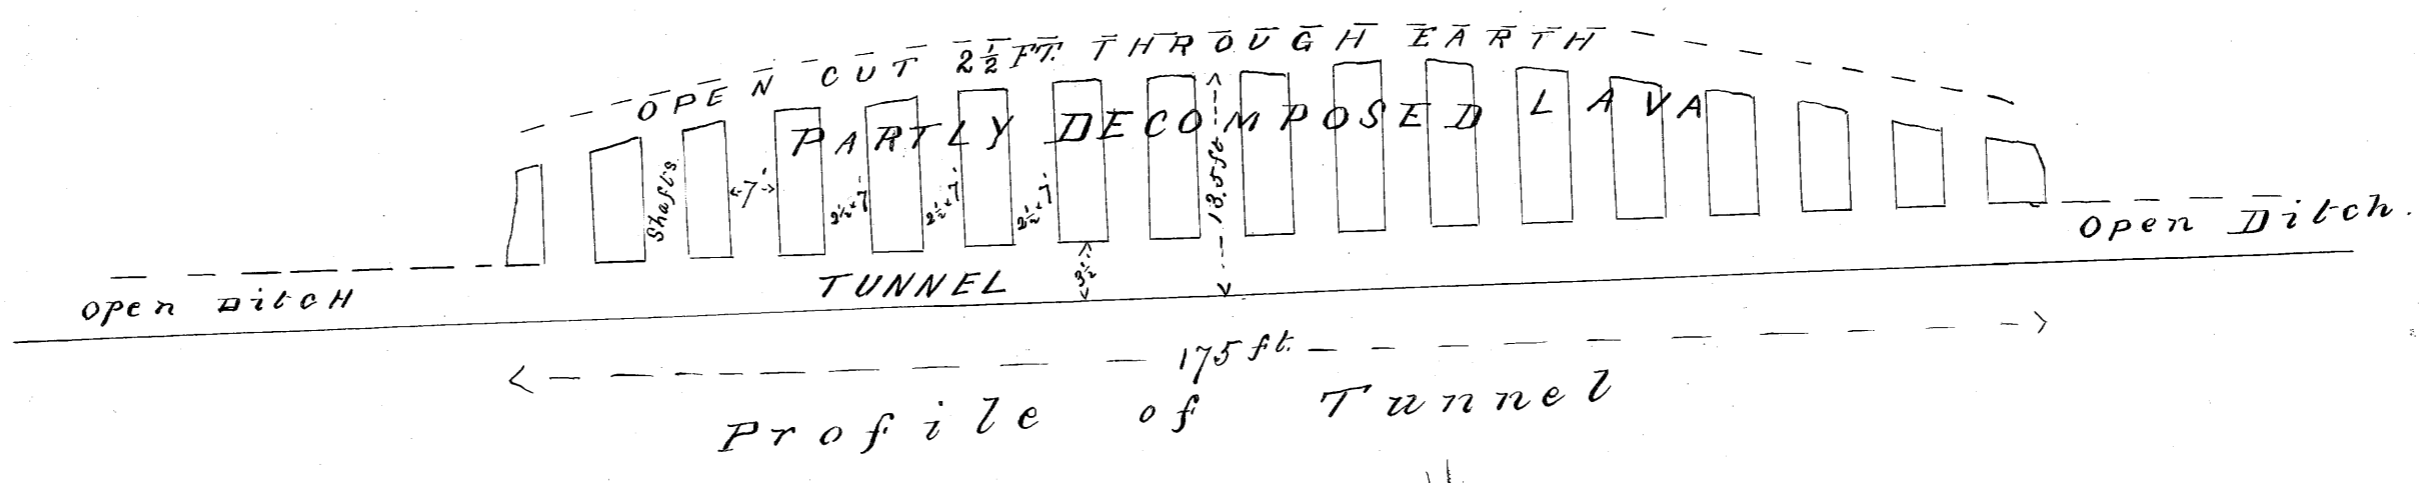 OPEN CUT 2½ FT. THROUGH EARTH
PARTLY DECOMPOSED LAVA
Shafts
7'
2½'x7'
2½'x7'
2½'x7'
13.5ft
3½'
Open Ditch.
TUNNEL
Open DitcH
175 ft.
Profile of Tunnel